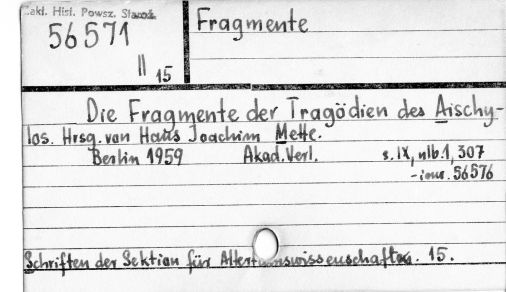 Zakł. Hist. Powsz. Staroż.
56571
II 15
Fragmente
Die Fragmente der Tragödien des Aischy-
los. Hrsg. von Hans Joachim Mette.
Berlin 1959 Akad. Verl. s. IX, nlb. 1, 307
-inw. 56576
Schriften der Sektion für Altertumswissenschaften. 15.